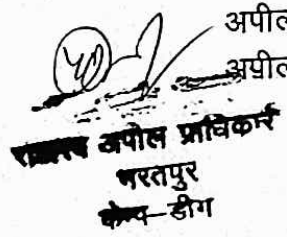 अपील
अपील
राजस्व अपील प्राधिकारी
भरतपुर
केम्प-डीग